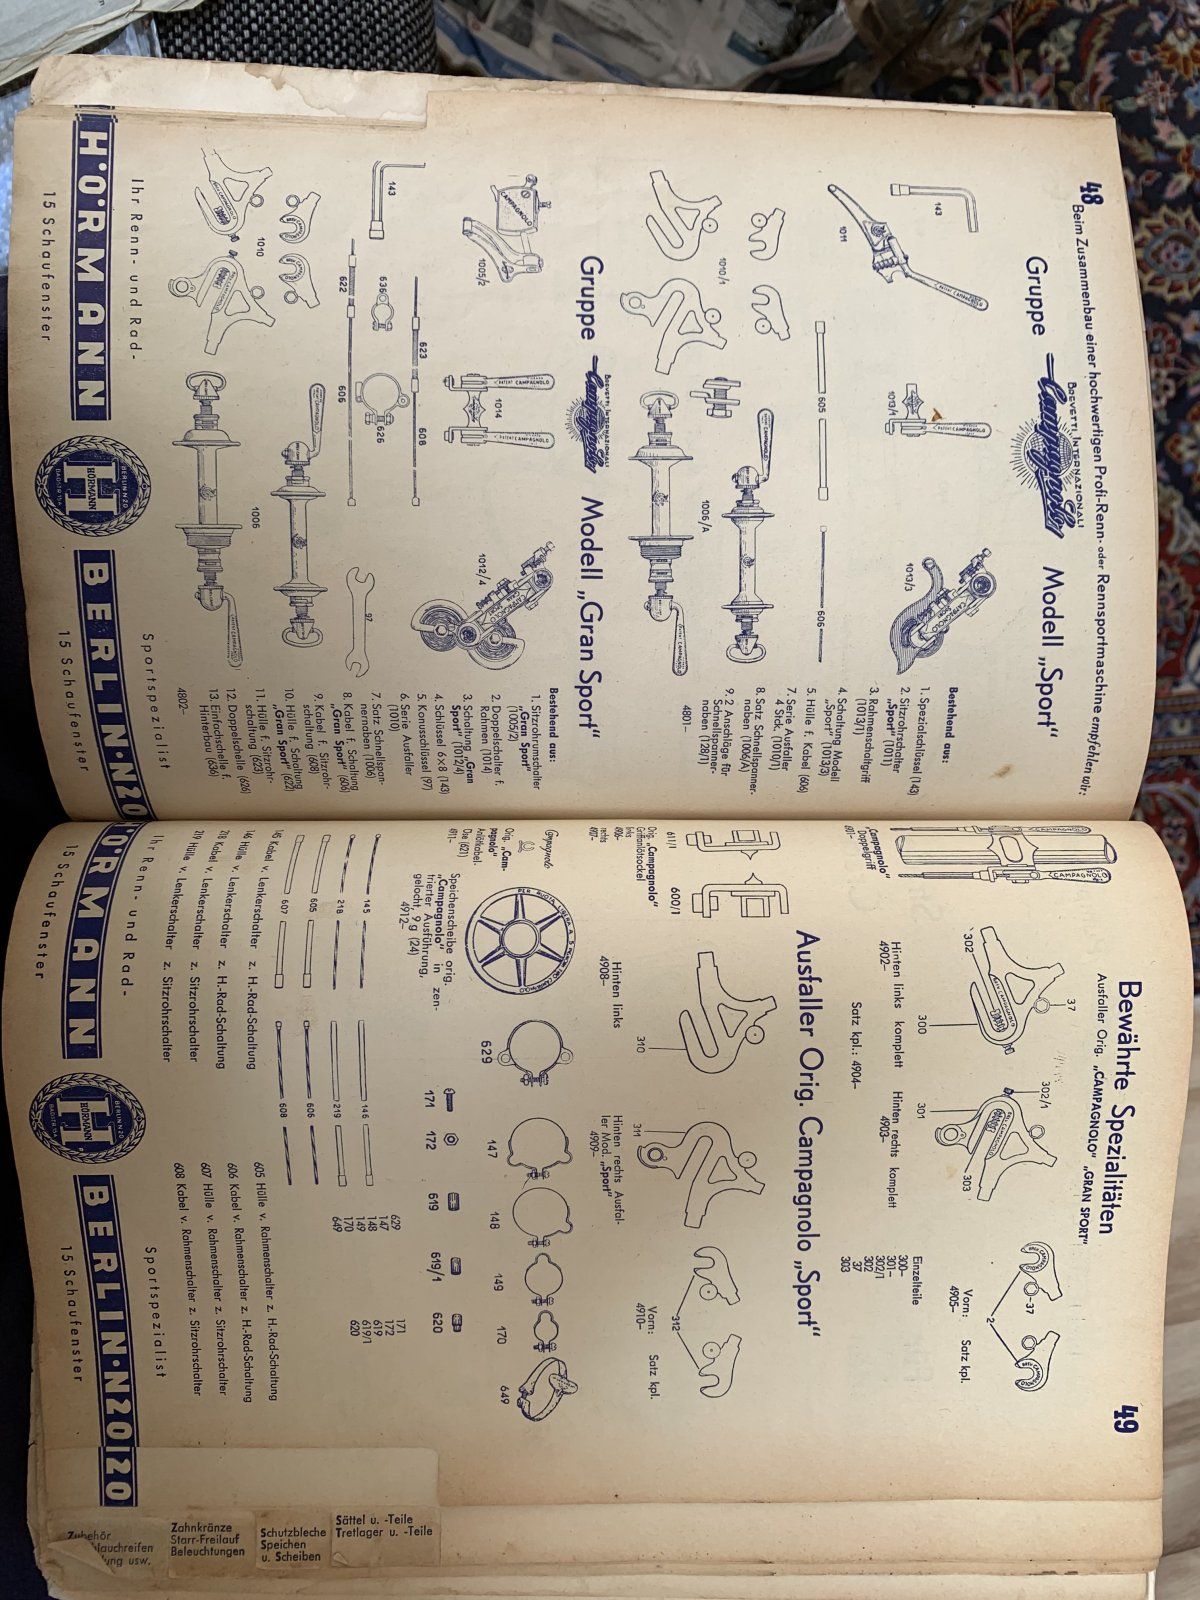 48
Beim Zusammenbau einer hochwertigen Profi-Renn- oder Rennsportmaschine empfehlen wir:
Gruppe
BREVETTI INTERNAZIONALI
Campagnolo
Modell „Sport“
143
1011
1013/1
1013/3
605
606
1010/1
1006/A
Bestehend aus:
1. Spezialschlüssel (143)
2. Sitzrohrschalter
„Sport“ (1011)
3. Rahmenschaltgriff
(1013/1)
4. Schaltung Modell
„Sport“ (1013/3)
5. Hülle f. Kabel (606)
7. Serie Ausfaller
4 Stck. (1010/1)
8. Satz Schnellspanner-
naben (1006/A)
9. 2 Anschläge für
Schnellspanner-
naben (128/1)
4801–
Gruppe
BREVETTI INTERNAZIONALI
Campagnolo
Modell „Gran Sport“
CAMPAGNOLO
1005/2
1014
1012/4
143
623
608
636
626
622
606
97
1010
1006
Bestehend aus:
1. Sitzrohrumschalter
„Gran Sport“
(1005/2)
2. Doppelschalter f.
Rahmen (1014)
3. Schaltung „Gran
Sport“ (1012/4)
4. Schlüssel 6×8 (143)
5. Konusschlüssel (97)
6. Serie Ausfaller
(1010)
7. Satz Schnellspan-
nernaben (1006)
8. Kabel f. Schaltung
„Gran Sport“ (606)
9. Kabel f. Sitzrohr-
schaltung (608)
10. Hülle f. Schaltung
„Gran Sport“ (622)
11. Hülle f. Sitzrohr-
schaltung (623)
12. Doppelschelle (626)
13. Einfachschelle f.
Hinterbau (636)
4802–
Ihr Renn- und Rad-
Sportspezialist
HÖRMANN
BERLIN N 20
HÖRMANN
BADSTR. 54
BERLIN·N20
15 Schaufenster
15 Schaufenster
49
Bewährte Spezialitäten
Ausfaller Orig. „CAMPAGNOLO“ „GRAN SPORT“
CAMPAGNOLO
CAMPAGNOLO
„Campagnolo“
Doppelgriff
302
37
300
302/1
301
303
37
2
Hinten links komplett
4902–
Hinten rechts komplett
4903–
Satz kpl.: 4904–
Vorn: Satz kpl.
4905–
Einzelteile
300–
301–
302/1
302
37
303
Ausfaller Orig. Campagnolo „Sport“
611/1
600/1
Orig. „Campagnolo“
links
rechts
310
311
312
Hinten links
4908–
Hinten rechts Ausfal-
ler Mod. „Sport“
4909–
Vorn: Satz kpl.
4910–
Campagnolo
Orig. „Cam-
pagnolo“
Öse (621)
4911–
Speichenscheibe orig.
„Campagnolo“ in zen-
trierter Ausführung,
gelocht, 9 g (24)
4912–
629
147
148
149
170
649
171
172
619
619/1
620
629
147
148
149
170
649
171
172
619
619/1
620
145
218
605
607
146
219
606
608
145 Kabel v. Lenkerschalter z. H.-Rad-Schaltung
146 Hülle v. Lenkerschalter z. H.-Rad-Schaltung
218 Kabel v. Lenkerschalter z. Sitzrohrschalter
219 Hülle v. Lenkerschalter z. Sitzrohrschalter
605 Hülle v. Rahmenschalter z. H.-Rad-Schaltung
606 Kabel v. Rahmenschalter z. H.-Rad-Schaltung
607 Hülle v. Rahmenschalter z. Sitzrohrschalter
608 Kabel v. Rahmenschalter z. Sitzrohrschalter
Ihr Renn- und Rad-
Sportspezialist
HÖRMANN
BERLIN N 20
HÖRMANN
BADSTR. 54
BERLIN·N20
15 Schaufenster
15 Schaufenster
20
Sättel u. -Teile
Tretlager u. -Teile
Schutzbleche
Speichen
u. Scheiben
Zahnkränze
Starr-Freilauf
Beleuchtungen
Zubehör
usw.